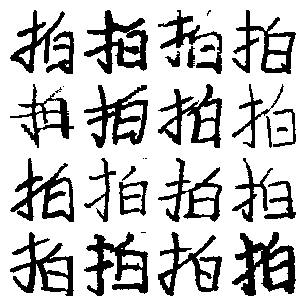 拍拍拍拍
拍拍拍拍
拍拍拍拍
拍拍拍拍